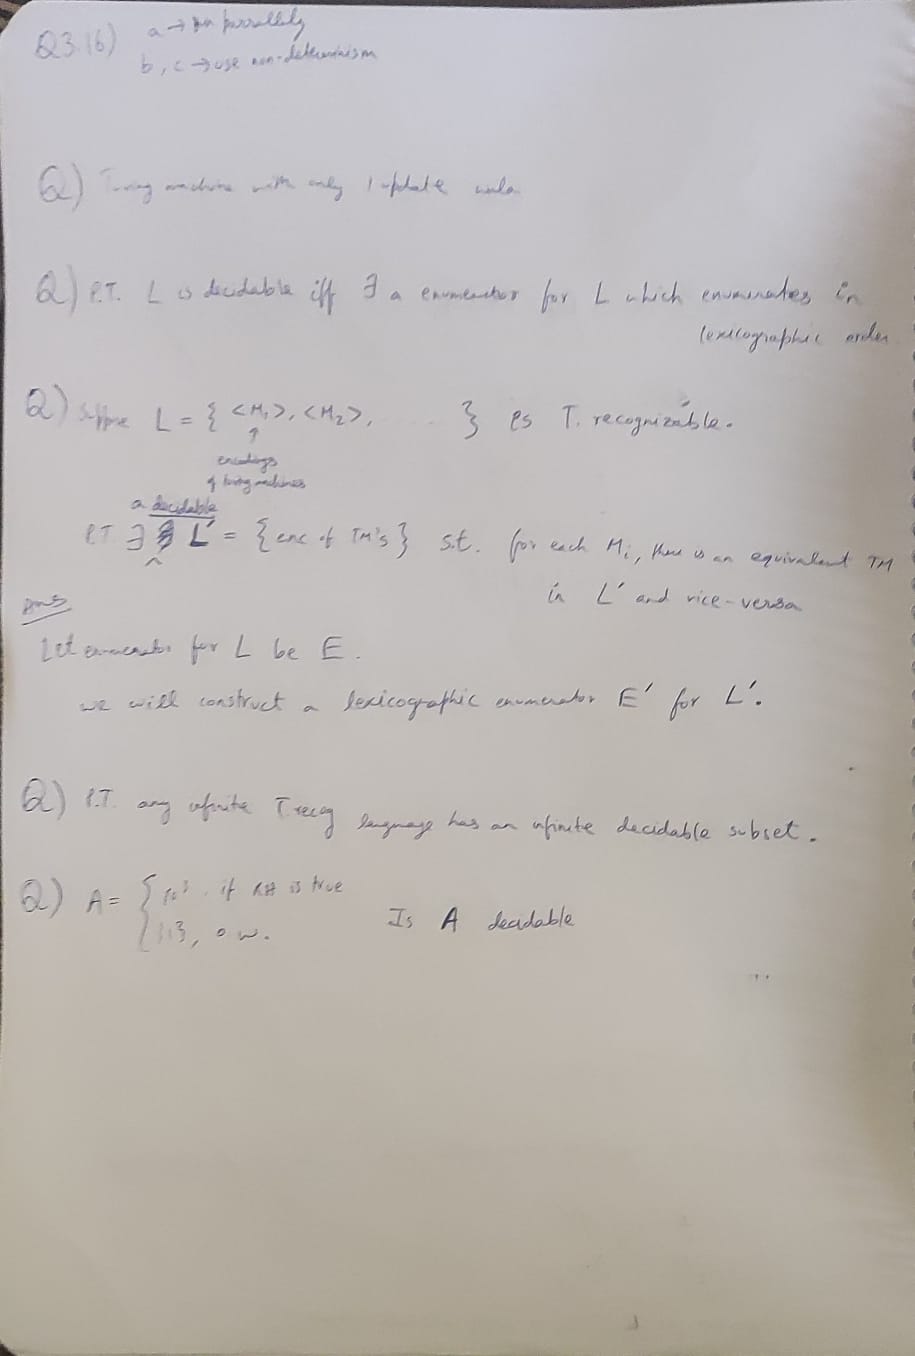 Q3.16) a → run parallely
b, c → use non-determinism
Q) Turing machine with only 1 update
Q) P.T. L is decidable iff ∃ a enumerator for L which enumerates in
lexicographic order
Q) Suppose L = { <M₁>, <M₂>, ... } is T. recognizable.
↑
encodings
of turing machines
a decidable
P.T. ∃ L' = {enc of TM's} s.t. for each Mᵢ, there is an equivalent TM
in L' and vice-versa
Ans
Let enumerator for L be E.
we will construct a lexicographic enumerator E' for L'.
Q) P.T. any infinite T recog language has an infinite decidable subset.
Q) A = { {0}, if RH is true
{1}, o w. Is A decidable